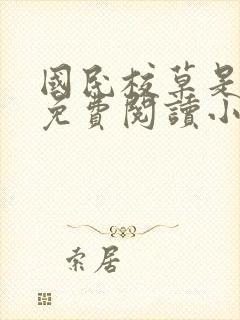 國民校草是
免費閱讀小
索居